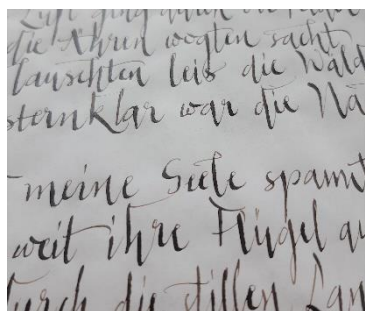 Luft ging durch die Felder
die Ähren wogten sacht
lauschten leis die Wäld
sternklar war die Nä
meine Seele spannt
weit ihre Flügel au
durch die stillen Lan